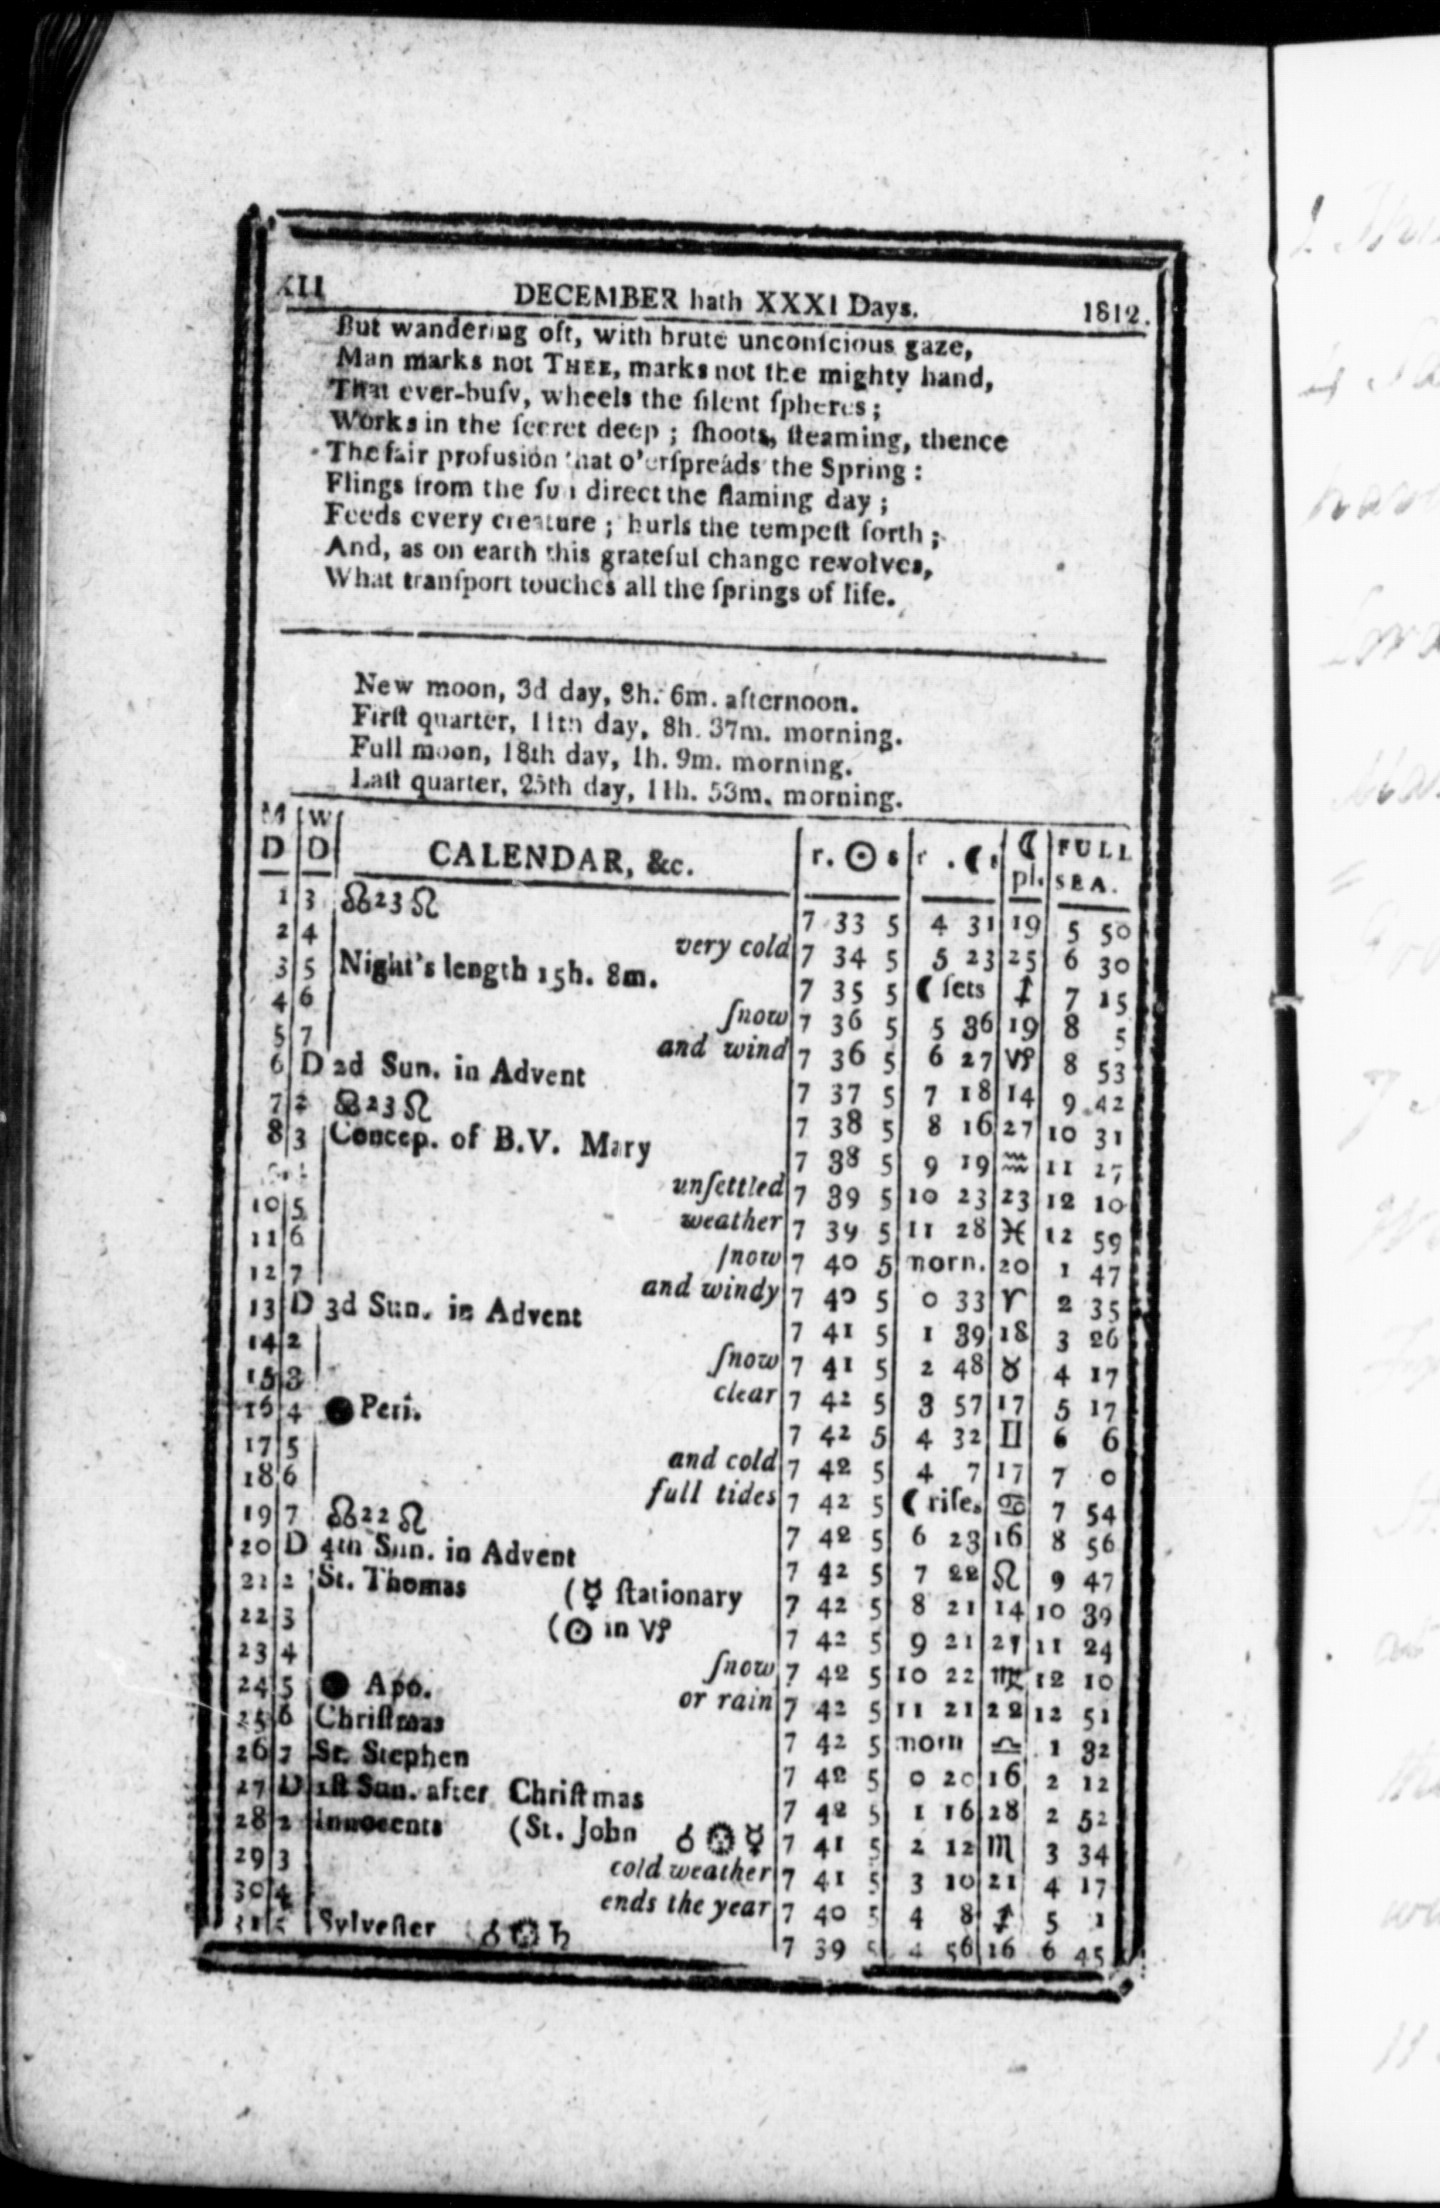 XII DECEMBER hath XXXI Days. 1812.
But wandering oft, with brute unconſcious gaze,
Man marks not THEE, marks not the mighty hand,
That ever-buſy, wheels the ſilent ſpheres;
Works in the ſecret deep; ſhoots, ſteaming, thence
The fair profuſion that o'erſpreads the Spring:
Flings from the ſun direct the flaming day;
Feeds every creature; hurls the tempeſt forth;
And, as on earth this grateful change revolves,
What tranſport touches all the ſprings of life.
New moon, 3d day, 8h. 6m. afternoon.
Firſt quarter, 11th day, 8h. 37m. morning.
Full moon, 18th day, 1h. 9m. morning.
Laſt quarter, 25th day, 11h. 53m. morning.
M D W D CALENDAR, &c. r. ☉ s r. ☾ s ☾ pl. FULL SEA.
1 3 ☊23♌ 7 33 5 4 31 19 5 50
2 4 very cold 7 34 5 5 23 25 6 30
3 5 Night's length 15h. 8m. 7 35 5 ☾ ſets ♐ 7 15
4 6 ſnow 7 36 5 5 36 19 8 5
5 7 and wind 7 36 5 6 27 ♑ 8 53
6 D 2d Sun. in Advent 7 37 5 7 18 14 9 42
7 2 ☊23♌ 7 38 5 8 16 27 10 31
8 3 Concep. of B.V. Mary 7 38 5 9 19 ♒ 11 27
unſettled 7 39 5 10 23 23 12 10
10 5 weather 7 39 5 11 28 ♓ 12 59
11 6 ſnow 7 40 5 morn. 20 1 47
12 7 and windy 7 40 5 0 33 ♈ 2 35
13 D 3d Sun. in Advent 7 41 5 1 39 18 3 26
14 2 ſnow 7 41 5 2 48 ♉ 4 17
15 3 clear 7 42 5 3 57 17 5 17
16 4 Peri. 7 42 5 4 32 ♊ 6 6
17 5 and cold 7 42 5 4 7 17 7 0
18 6 full tides 7 42 5 ☾ riſe. ♋ 7 54
19 7 ☊22♌ 7 42 5 6 23 16 8 56
20 D 4th Sun. in Advent 7 42 5 7 22 ♌ 9 47
21 2 St. Thomas (☿ ſtationary 7 42 5 8 21 14 10 39
22 3 (☉ in ♑ 7 42 5 9 21 27 11 24
23 4 ſnow 7 42 5 10 22 ♍ 12 10
24 5 Apo. or rain 7 42 5 11 21 22 12 51
25 6 Chriſtmas 7 42 5 morn ♎ 1 32
26 7 St. Stephen 7 42 5 0 20 16 2 12
27 D 1ſt Sun. after Chriſtmas 7 42 5 1 16 28 2 52
28 2 Innocents (St. John ☌ ☉ ☿ 7 41 5 2 12 ♏ 3 34
29 3 cold weather 7 41 5 3 10 21 4 17
30 4 ends the year 7 40 5 4 8 ♐ 5 1
31 5 Sylveſter ☌ ☉ ♄ 7 39 5 4 56 16 6 45